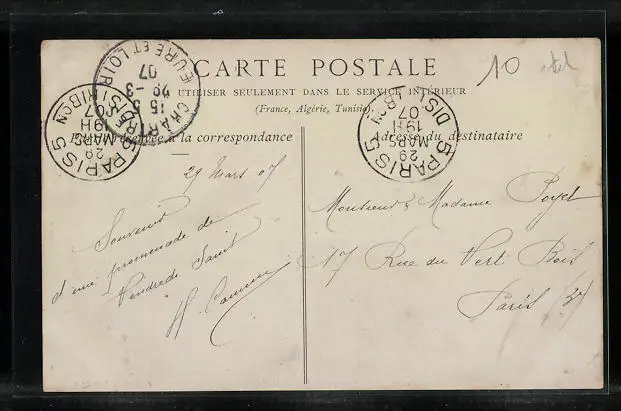 10
CARTE POSTALE
À UTILISER SEULEMENT DANS LE SERVICE INTÉRIEUR
(France, Algérie, Tunisie).
CHARTRES
EURE ET LOIR
15 5
29 - 3
07
PARIS 5
DISTRIBON
19H
29
MARS
07
PARIS 5
DISTRIBON
19H
29
MARS
07
la correspondance
Adresse du destinataire
29 Mars 07
Souvenir
d'une promenade de
Vendredi Saint
Monsieur & Madame Poyet
17 Rue du Vert Bois
Paris (3e)